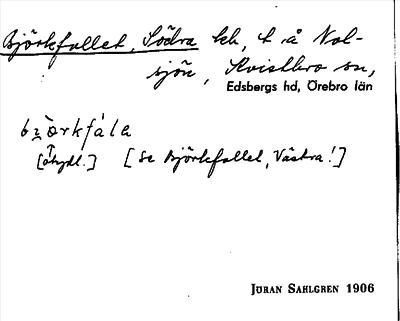 Björkfallet, Södra lh, t. å Nol-
sjön, Kvistbro sn,
Edsbergs hd, Örebro län
[otydl.] [Se Björkfallet, Västra!]
JÖRAN SAHLGREN 1906